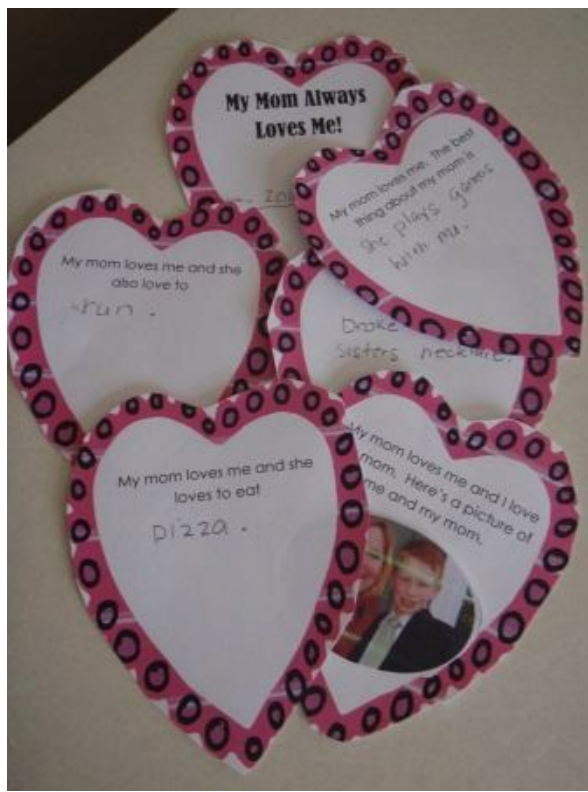 My Mom Always
Loves Me!
My mom loves me. The best
thing about my mom is
she plays games
with me.
My mom loves me and she
also love to
run.
Broke
sisters necklace.
My mom loves me and she
loves to eat
pizza.
My mom loves me and I love
mom. Here's a picture of
me and my mom.